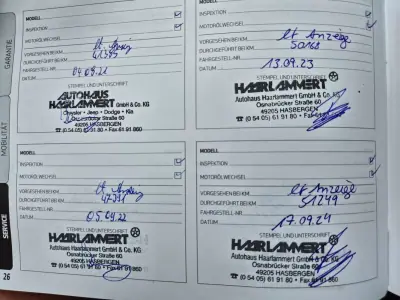 GARANTIE
MOBILITÄT
SERVICE
26
MODELL
INSPEKTION
MOTORÖLWECHSEL
VORGESEHEN BEI KM
DURCHGEFÜHRT BEI KM
FAHRGESTELL-NR.
DATUM 04.09.21
STEMPEL UND UNTERSCHRIFT
AUTOHAUS
HAARLAMMERT GmbH & Co. KG
Chrysler • Jeep • Dodge • Kia
Osnabrücker Straße 60
49205 HASBERGEN
☎ (0 54 05) 61 91 80 • Fax 61 91 860
INSPEKTION
MOTORÖLWECHSEL
VORGESEHEN BEI KM lt Anzeige
DURCHGEFÜHRT BEI KM 50268
FAHRGESTELL-NR.
DATUM 13.09.23
STEMPEL UND UNTERSCHRIFT
HAARLAMMERT
Autohaus Haarlammert GmbH & Co. KG
Osnabrücker Straße 60
49205 HASBERGEN
☎ (0 54 05) 61 91 80 • Fax
MODELL
INSPEKTION
MOTORÖLWECHSEL
VORGESEHEN BEI KM
DURCHGEFÜHRT BEI KM
FAHRGESTELL-NR.
DATUM 05.09.22
STEMPEL UND UNTERSCHRIFT
HAARLAMMERT
Autohaus Haarlammert GmbH & Co. KG
Osnabrücker Straße 60
49205 HASBERGEN
☎ (0 54 05) 61 91 80 • Fax 61 91 860
MODELL
INSPEKTION
MOTORÖLWECHSEL
VORGESEHEN BEI KM lt Anzeige
DURCHGEFÜHRT BEI KM 51249
FAHRGESTELL-NR.
DATUM 17.09.24
STEMPEL UND UNTERSCHRIFT
HAARLAMMERT
Autohaus Haarlammert GmbH & Co. KG
Osnabrücker Straße 60
49205 HASBERGEN
☎ (0 54 05) 61 91 80 • Fax 61 91 860